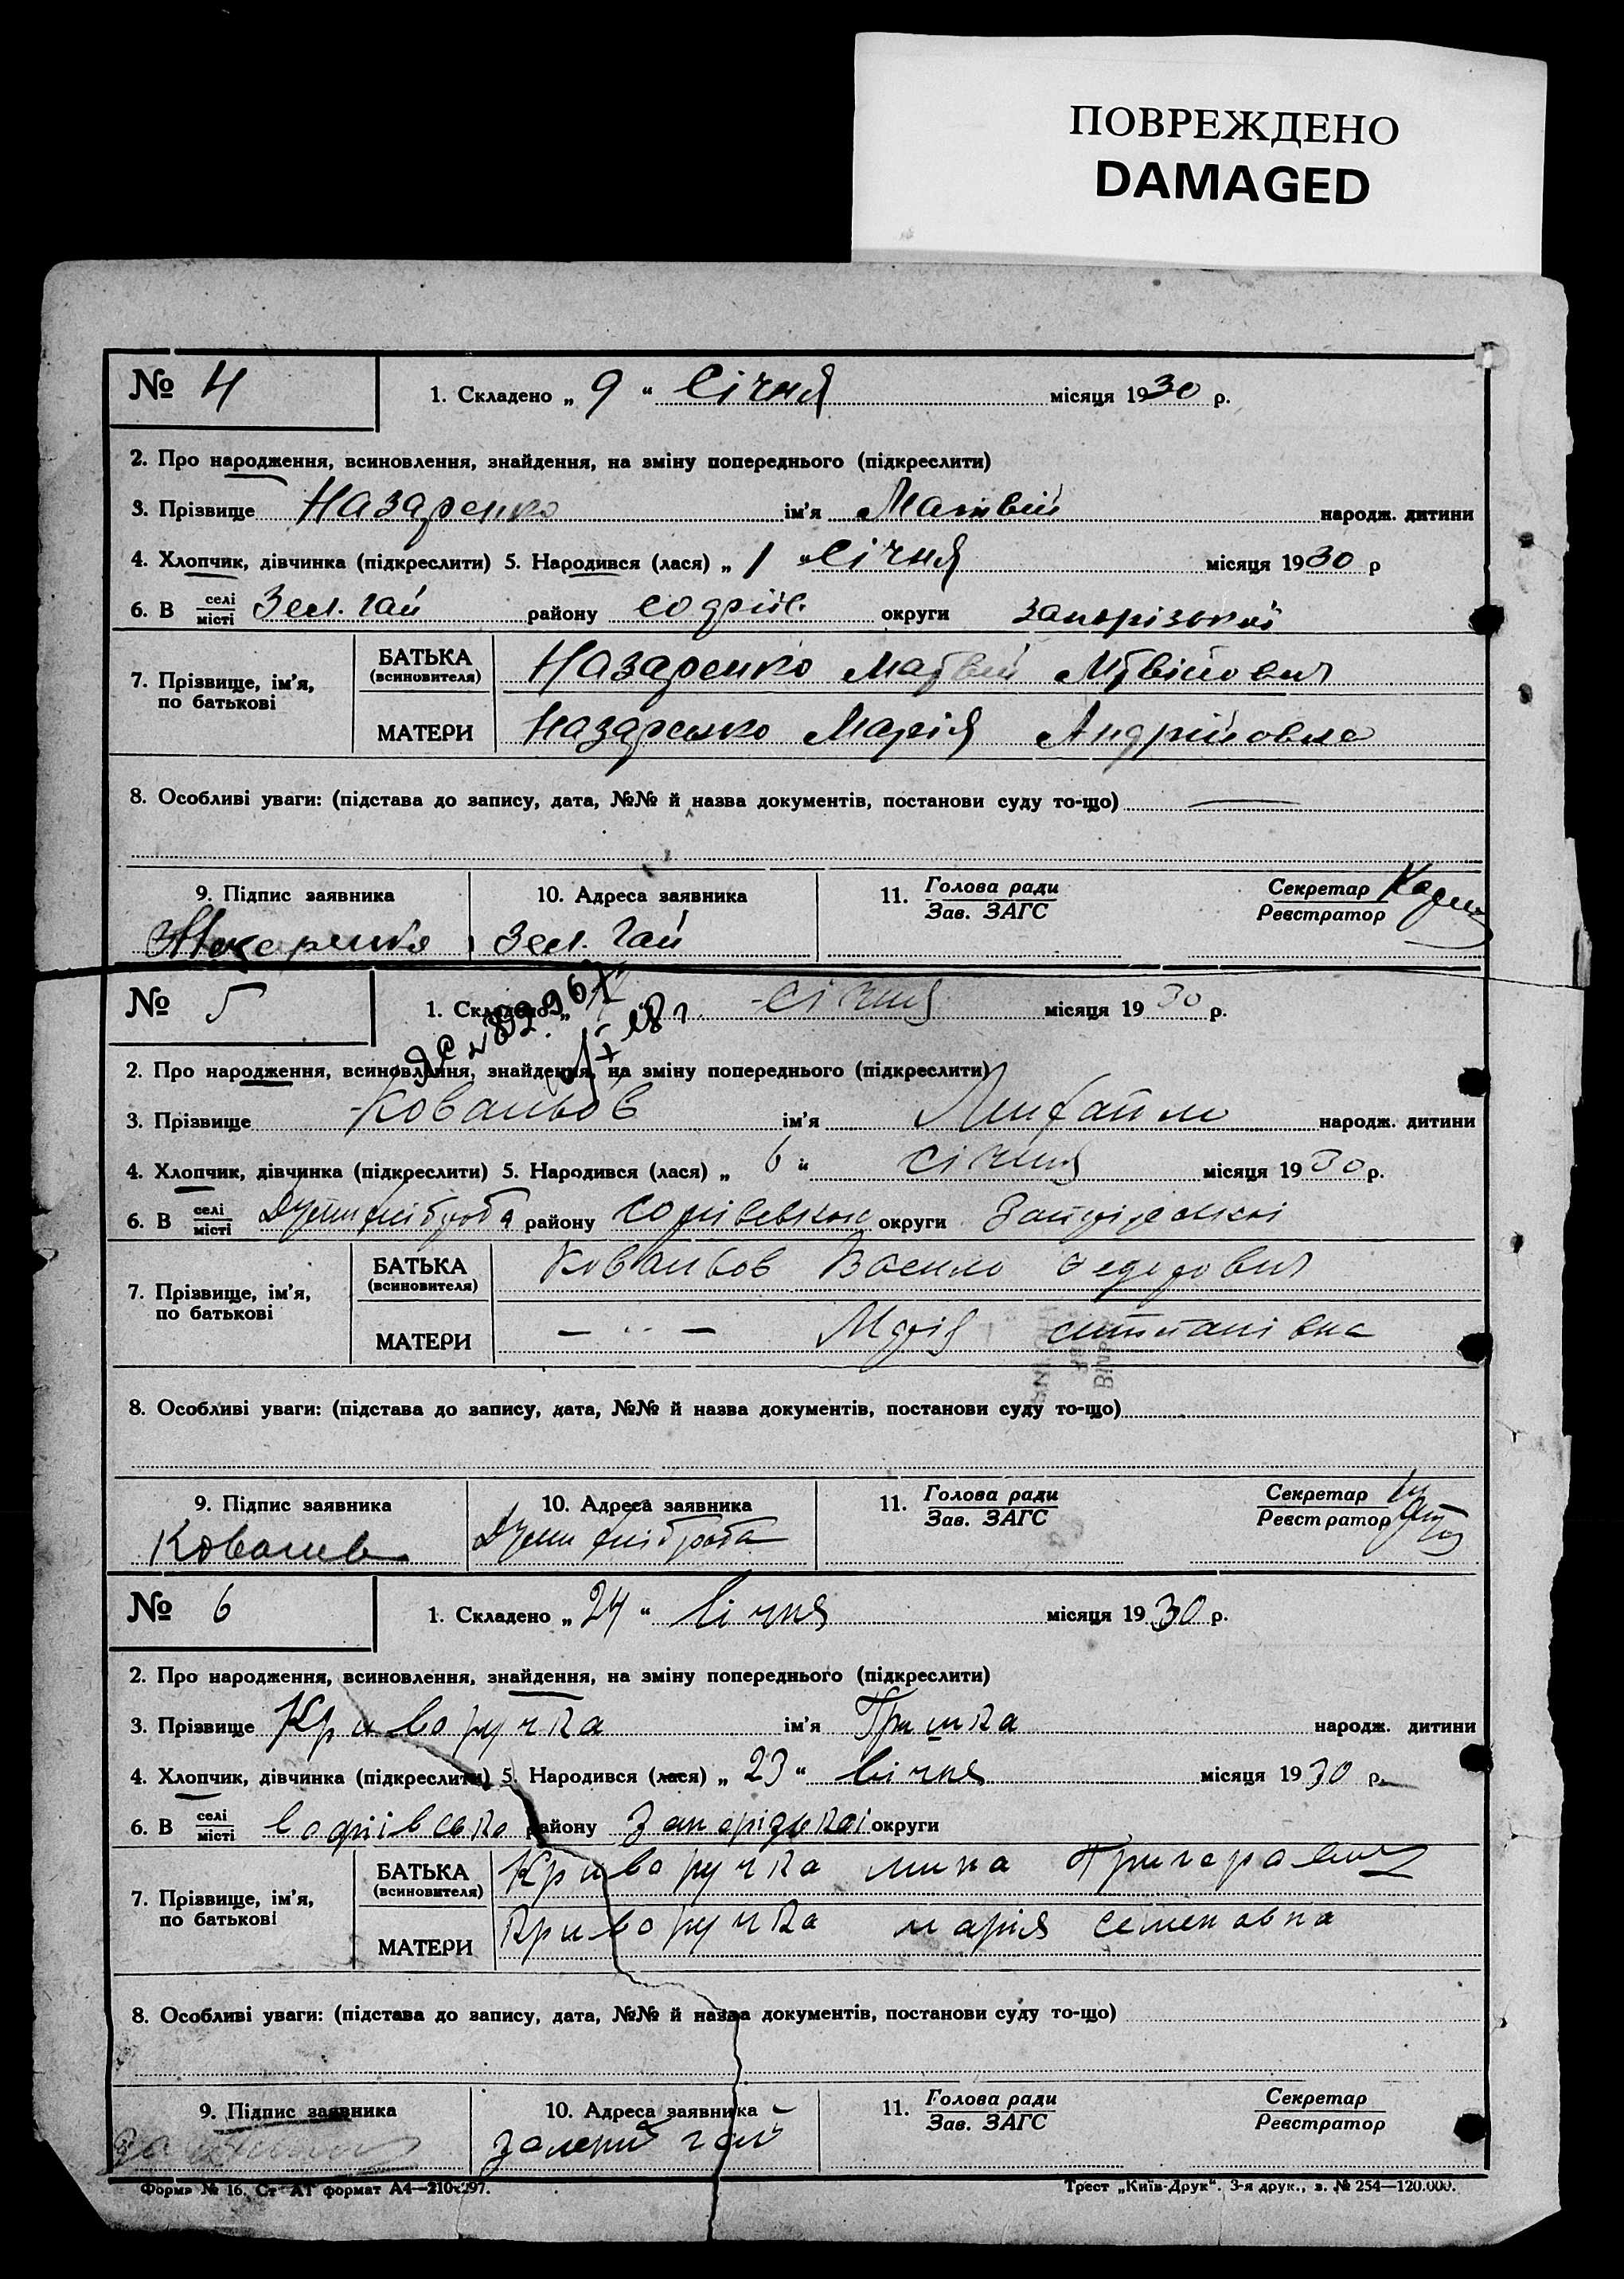 ПОВРЕЖДЕНО
DAMAGED
№ 4 1. Складено „ 9 “ Січня місяця 1930 р.
2. Про народження, всиновлення, знайдення, на зміну попереднього (підкреслити)
3. Прізвище Назаренко ім'я Матвій народж. дитини
4. Хлопчик, дівчинка (підкреслити) 5. Народився (лася) „ 1 “ Січня місяця 1930 р
6. В селі/місті Зел. Гай району округи Запорізької
7. Прізвище, ім'я, по батькові
БАТЬКА (всиновителя) Назаренко Матвій Мтвійович
МАТЕРИ Назаренко Марія Андрійовна
8. Особливі уваги: (підстава до запису, дата, №№ й назва документів, постанови суду то-що) —
9. Підпис заявника 10. Адреса заявника 11. Голова ради/Зав. ЗАГС Секретар/Реєстратор
Зел. Гай
№ 5 1. Складено „ січня місяця 1930 р.
2. Про народження, всиновлення, знайдення, на зміну попереднього (підкреслити)
3. Прізвище Ковальов ім'я Михайло народж. дитини
4. Хлопчик, дівчинка (підкреслити) 5. Народився (лася) „ 6 “ січня місяця 1930 р.
6. В селі/місті району округи
7. Прізвище, ім'я, по батькові
БАТЬКА (всиновителя) Ковальов Васило Федорович
МАТЕРИ — „ — Марія
8. Особливі уваги: (підстава до запису, дата, №№ й назва документів, постанови суду то-що)
9. Підпис заявника 10. Адреса заявника 11. Голова ради/Зав. ЗАГС Секретар/Реєстратор
Ковалев
№ 6 1. Складено „ 24 “ Січня місяця 1930 р.
2. Про народження, всиновлення, знайдення, на зміну попереднього (підкреслити)
3. Прізвище Криворучка ім'я Гришка народж. дитини
4. Хлопчик, дівчинка (підкреслити) 5. Народився (лася) „ 23 “ Січня місяця 1930 р.
6. В селі/місті Софіівсько району Запорізькоі округи
7. Прізвище, ім'я, по батькові
БАТЬКА (всиновителя) Криворучка мина Григорович
МАТЕРИ Криворучка марія семеновна
8. Особливі уваги: (підстава до запису, дата, №№ й назва документів, постанови суду то-що)
9. Підпис заявника 10. Адреса заявника 11. Голова ради/Зав. ЗАГС Секретар/Реєстратор
гай
Форма № 16. Ст АТ формат А4—210х297. Трест „Київ-Друк“. 3-я друк., з. № 254—120.000.